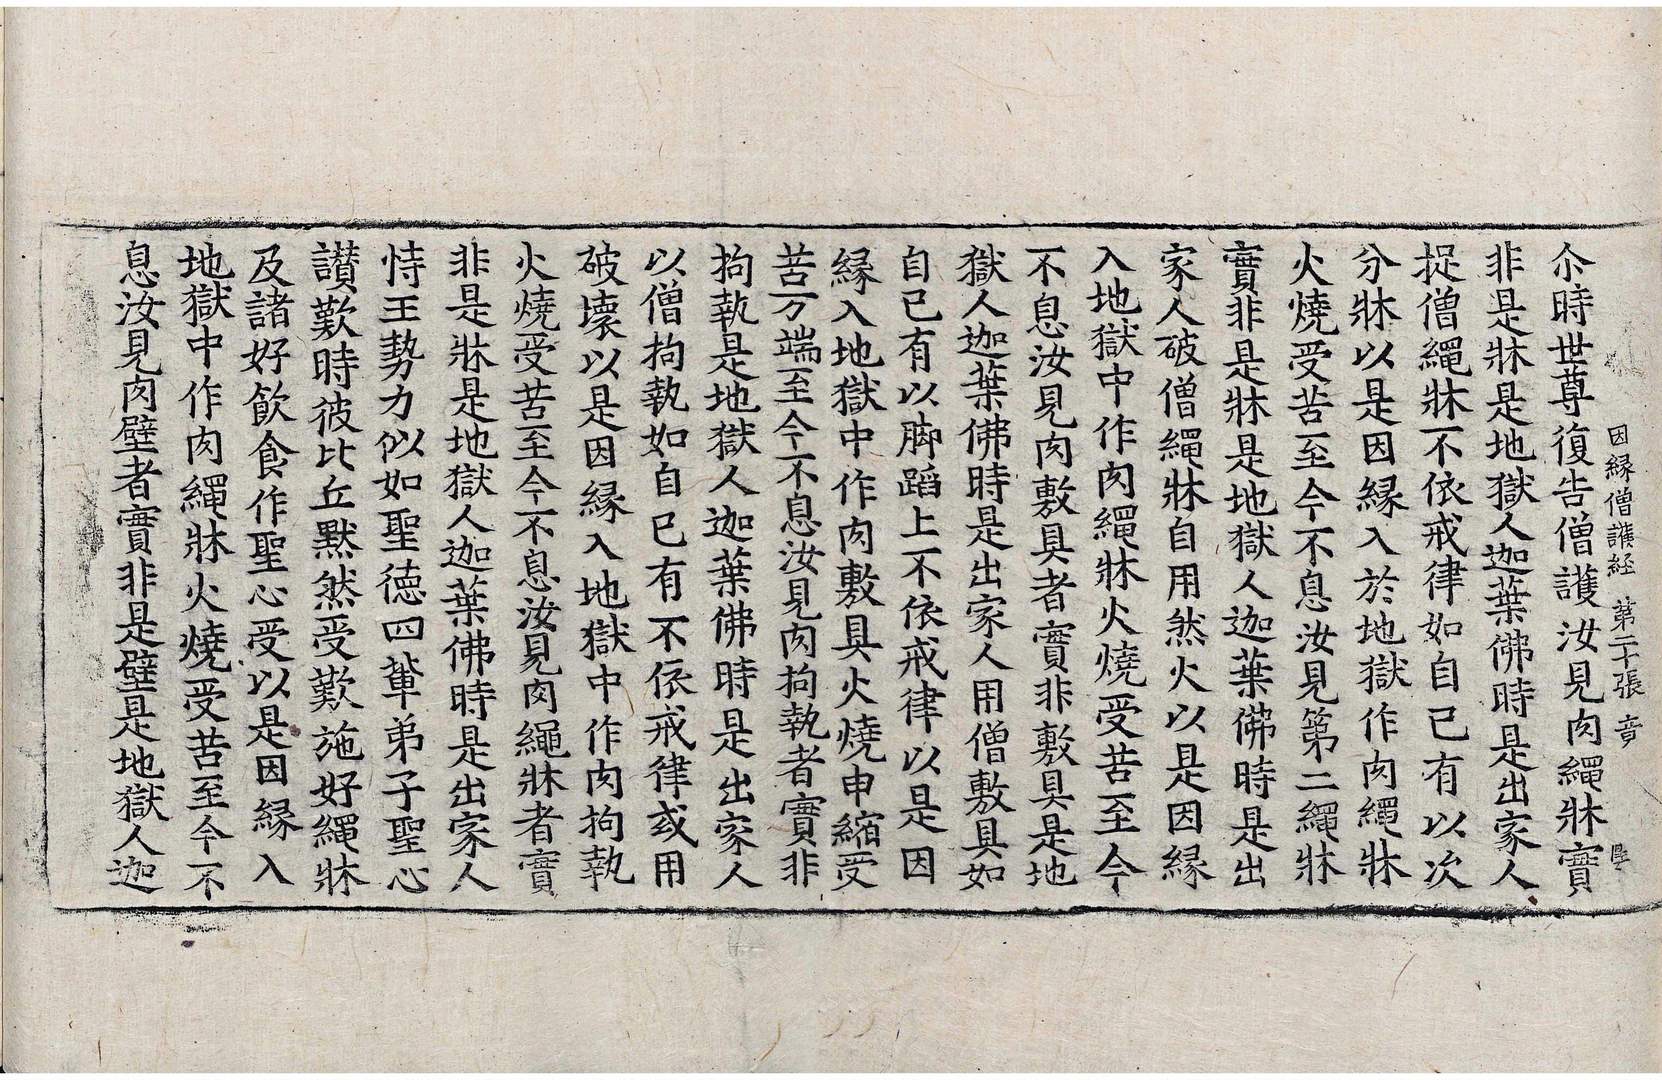 因縁僧護経 第二十張
尒時世尊復告僧護汝見肉繩牀實
非是牀是地獄人迦葉佛時是出家人
捉僧繩牀不依戒律如自己有以次
分牀以是因縁入於地獄作肉繩牀
火燒受苦至今不息汝見第二繩牀
實非是牀是地獄人迦葉佛時是出
家人破僧繩牀自用然火以是因縁
入地獄中作肉繩牀火燒受苦至今
不息汝見肉敷具者實非敷具是地
獄人迦葉佛時是出家人用僧敷具如
自己有以脚蹈上不依戒律以是因
縁入地獄中作肉敷具火燒申縮受
苦万端至今不息汝見肉拘執者實非
拘執是地獄人迦葉佛時是出家人
以僧拘執如自己有不依戒律或用
破壞以是因縁入地獄中作肉拘執
火燒受苦至今不息汝見肉繩牀者實
非是牀是地獄人迦葉佛時是出家人
恃王勢力似如聖德四輩弟子聖心
讃歎時彼比丘默然受歎施好繩牀
及諸好飲食作聖心受以是因縁入
地獄中作肉繩牀火燒受苦至今不
息汝見肉壁者實非是壁是地獄人迦